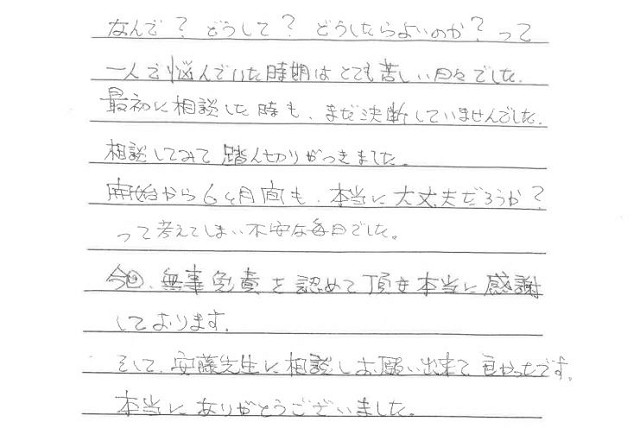 なんで？どうして？どうしたらよいのか？って
一人で悩んでいた時期はとても苦しい日々でした。
最初に相談した時も、まだ決断していませんでした。
相談してみて踏ん切りがつきました。
開始から6ヶ月間も、本当に大丈夫だろうか？
って考えてしまい不安な毎日でした。
今回、無事免責を認めて頂き本当に感謝
しております。
そして、安藤先生に相談しお願い出来て良かったです。
本当にありがとうございました。